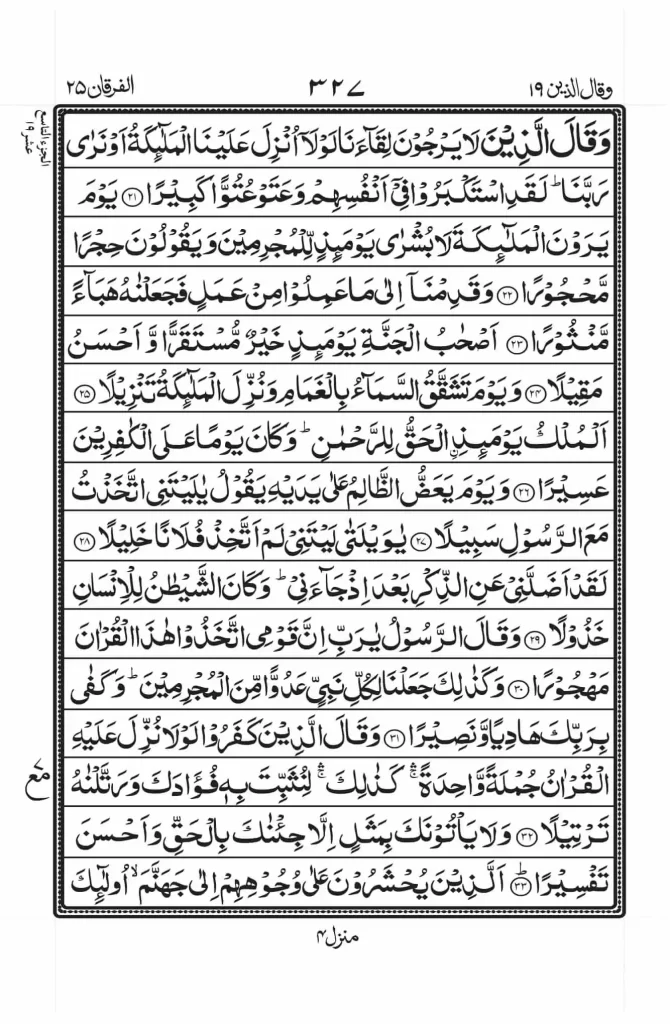 وقال الذين ١٩
٣٢٧
الفرقان ٢٥
الجزء التاسع
عشر ١٩
وَقَالَ الَّذِيْنَ لَا يَرْجُوْنَ لِقَآءَنَا لَوْلَاۤ اُنْزِلَ عَلَيْنَا الْمَلٰٓئِكَةُ اَوْ نَرٰى
رَبَّنَا ؕ لَقَدِ اسْتَكْبَرُوْا فِىْۤ اَنْفُسِهِمْ وَعَتَوْ عُتُوًّا كَبِيْرًا ﴿۲۱﴾ يَوْمَ
يَرَوْنَ الْمَلٰٓئِكَةَ لَا بُشْرٰى يَوْمَئِذٍ لِّلْمُجْرِمِيْنَ وَيَقُوْلُوْنَ حِجْرًا
مَّحْجُوْرًا ﴿۲۲﴾ وَقَدِمْنَاۤ اِلٰى مَا عَمِلُوْا مِنْ عَمَلٍ فَجَعَلْنٰهُ هَبَآءً
مَّنْثُوْرًا ﴿۲۳﴾ اَصْحٰبُ الْجَنَّةِ يَوْمَئِذٍ خَيْرٌ مُّسْتَقَرًّا وَّاَحْسَنُ
مَقِيْلًا ﴿۲۴﴾ وَيَوْمَ تَشَقَّقُ السَّمَآءُ بِالْغَمَامِ وَنُزِّلَ الْمَلٰٓئِكَةُ تَنْزِيْلًا ﴿۲۵﴾
اَلْمُلْكُ يَوْمَئِذِ ۟الْحَقُّ لِلرَّحْمٰنِ ؕ وَكَانَ يَوْمًا عَلَى الْكٰفِرِيْنَ
عَسِيْرًا ﴿۲۶﴾ وَيَوْمَ يَعَضُّ الظَّالِمُ عَلٰى يَدَيْهِ يَقُوْلُ يٰلَيْتَنِى اتَّخَذْتُ
مَعَ الرَّسُوْلِ سَبِيْلًا ﴿۲۷﴾ يٰوَيْلَتٰى لَيْتَنِىْ لَمْ اَتَّخِذْ فُلَانًا خَلِيْلًا ﴿۲۸﴾
لَقَدْ اَضَلَّنِىْ عَنِ الذِّكْرِ بَعْدَ اِذْ جَآءَنِىْ ؕ وَكَانَ الشَّيْطٰنُ لِلْاِنْسَانِ
خَذُوْلًا ﴿۲۹﴾ وَقَالَ الرَّسُوْلُ يٰرَبِّ اِنَّ قَوْمِى اتَّخَذُوْا هٰذَا الْقُرْاٰنَ
مَهْجُوْرًا ﴿۳۰﴾ وَكَذٰلِكَ جَعَلْنَا لِكُلِّ نَبِىٍّ عَدُوًّا مِّنَ الْمُجْرِمِيْنَ ؕ وَكَفٰى
بِرَبِّكَ هَادِيًا وَّنَصِيْرًا ﴿۳۱﴾ وَقَالَ الَّذِيْنَ كَفَرُوْا لَوْلَا نُزِّلَ عَلَيْهِ
الْقُرْاٰنُ جُمْلَةً وَّاحِدَةً ۛۚ كَذٰلِكَ ۛۚ لِنُثَبِّتَ بِهٖ فُؤَادَكَ وَرَتَّلْنٰهُ
مع
تَرْتِيْلًا ﴿۳۲﴾ وَلَا يَاْتُوْنَكَ بِمَثَلٍ اِلَّا جِئْنٰكَ بِالْحَقِّ وَاَحْسَنَ
تَفْسِيْرًا ؕ﴿۳۳﴾ اَلَّذِيْنَ يُحْشَرُوْنَ عَلٰى وُجُوْهِهِمْ اِلٰى جَهَنَّمَ ۙ اُولٰٓئِكَ
منزل ۴